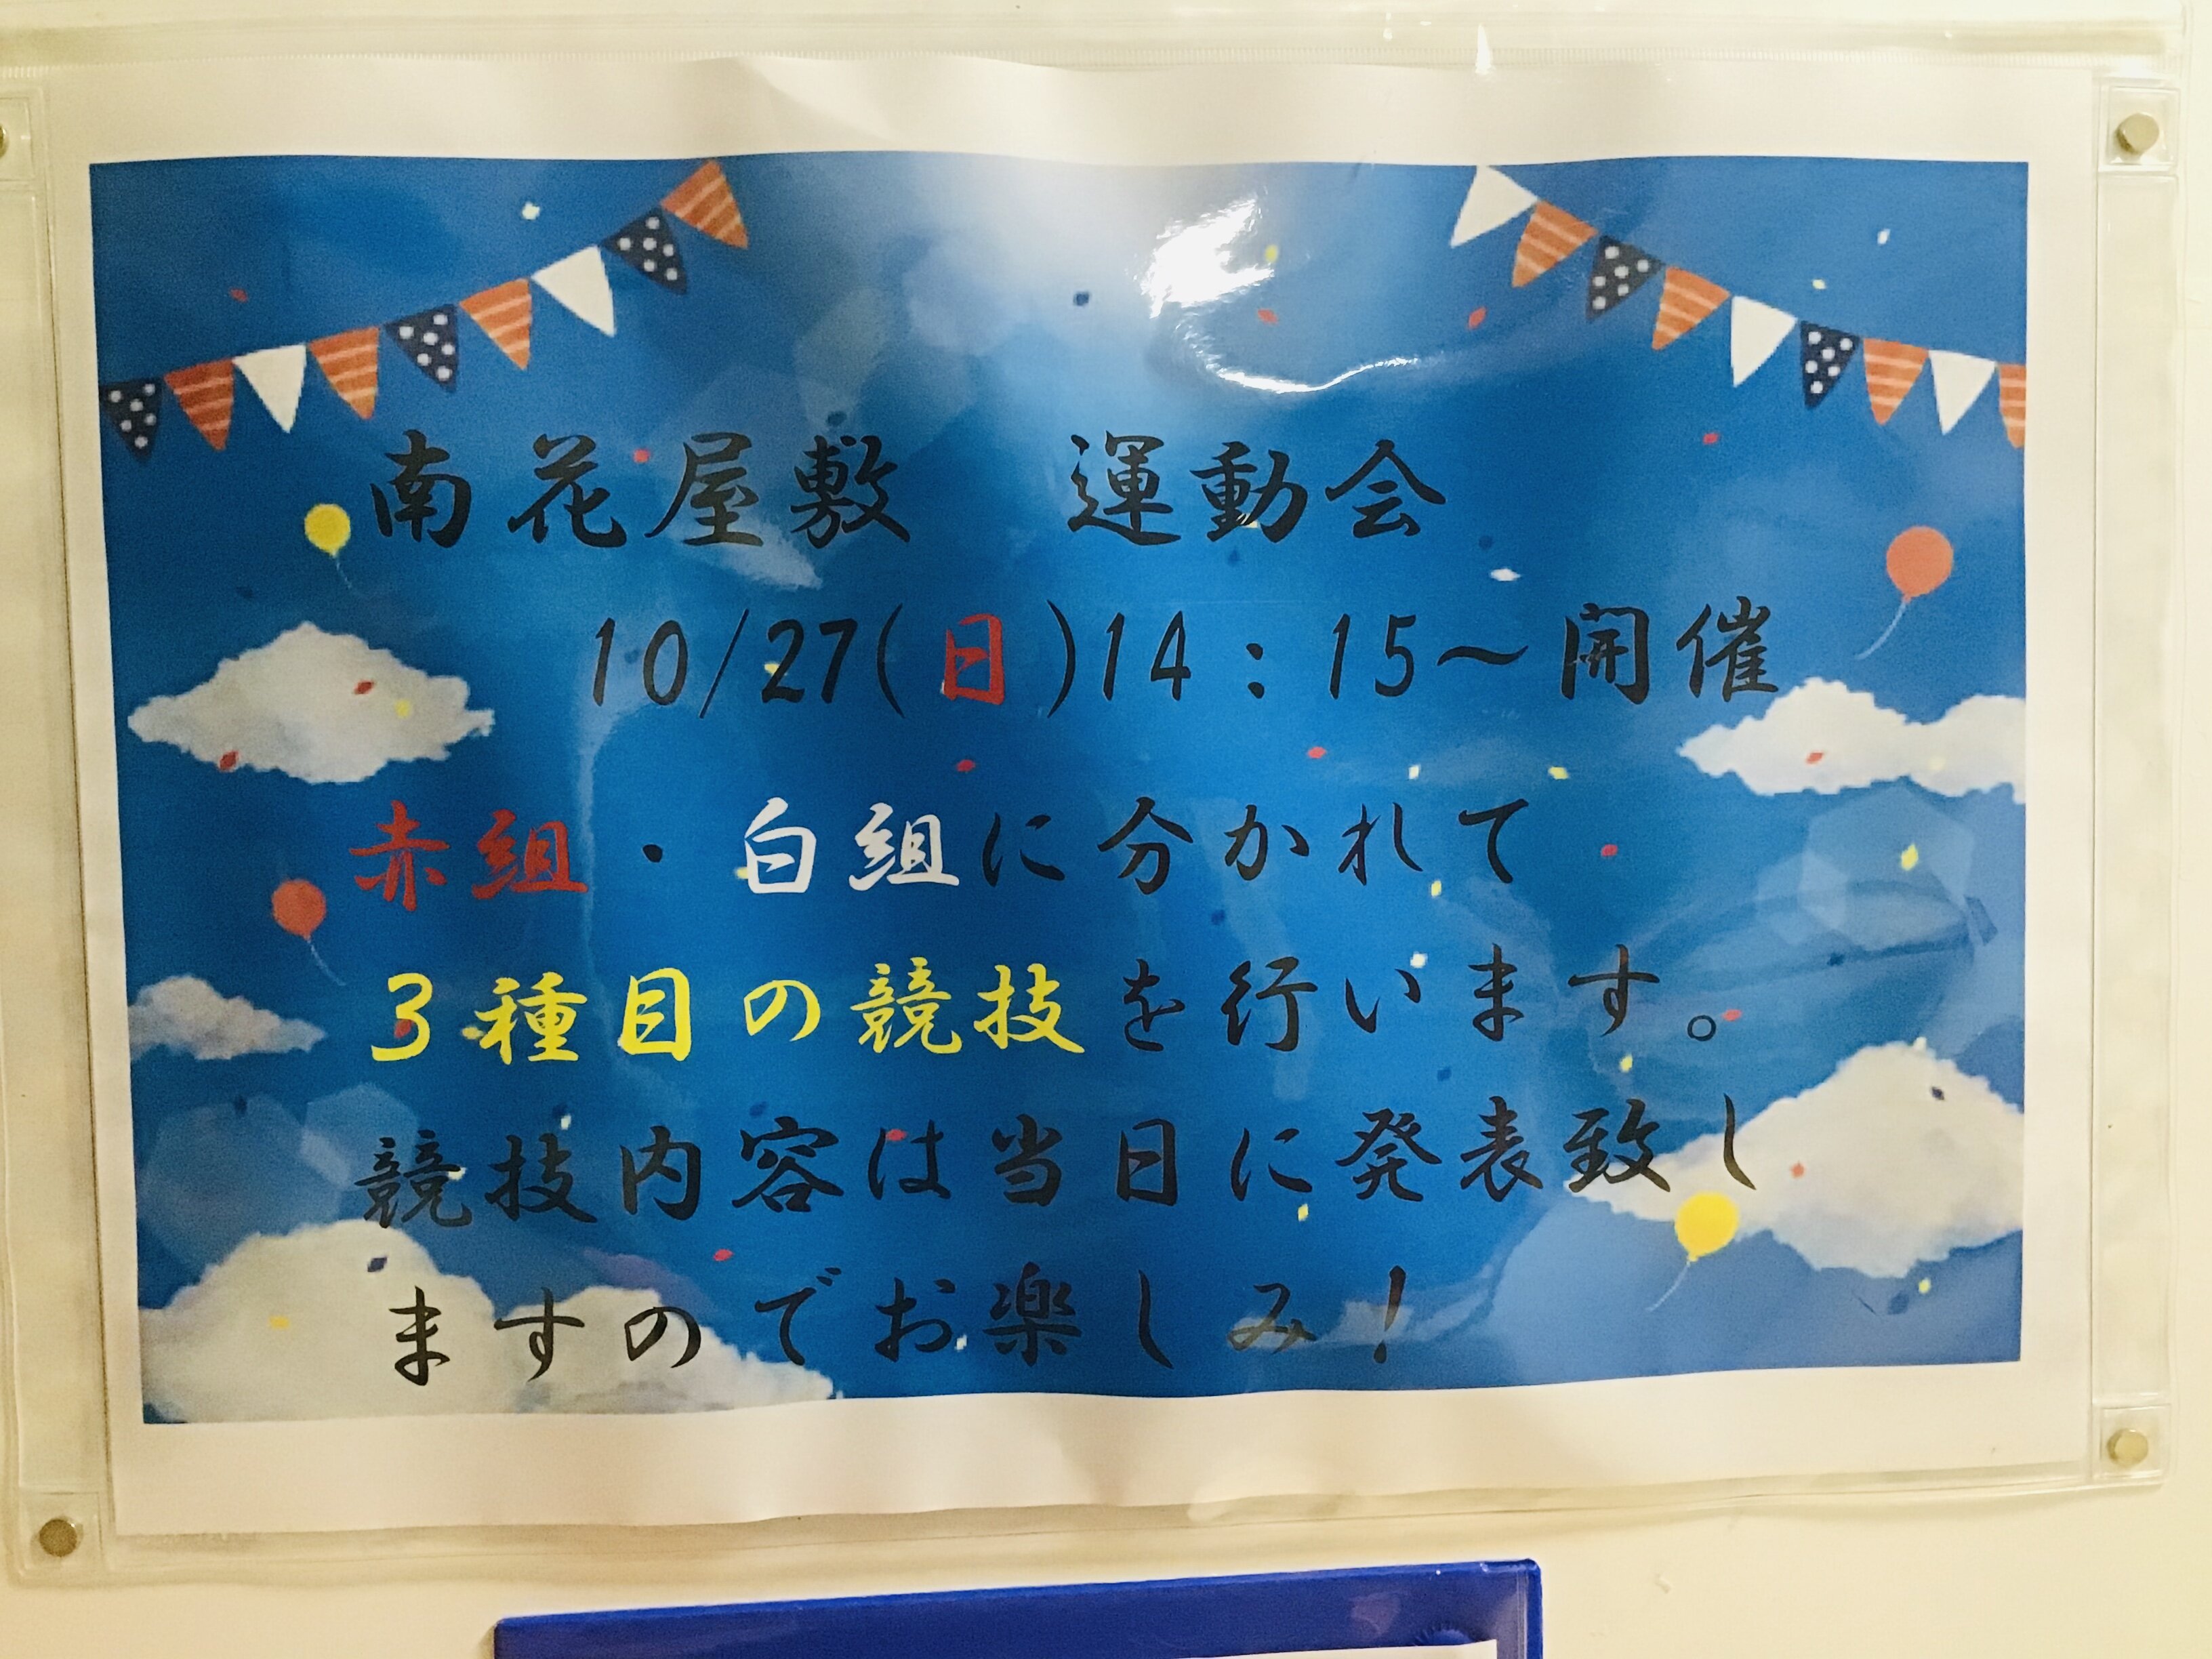 南花屋敷　運動会
10/27(日)14：15～開催
赤組・白組に分かれて
3種目の競技を行います。
競技内容は当日に発表致し
ますのでお楽しみ！